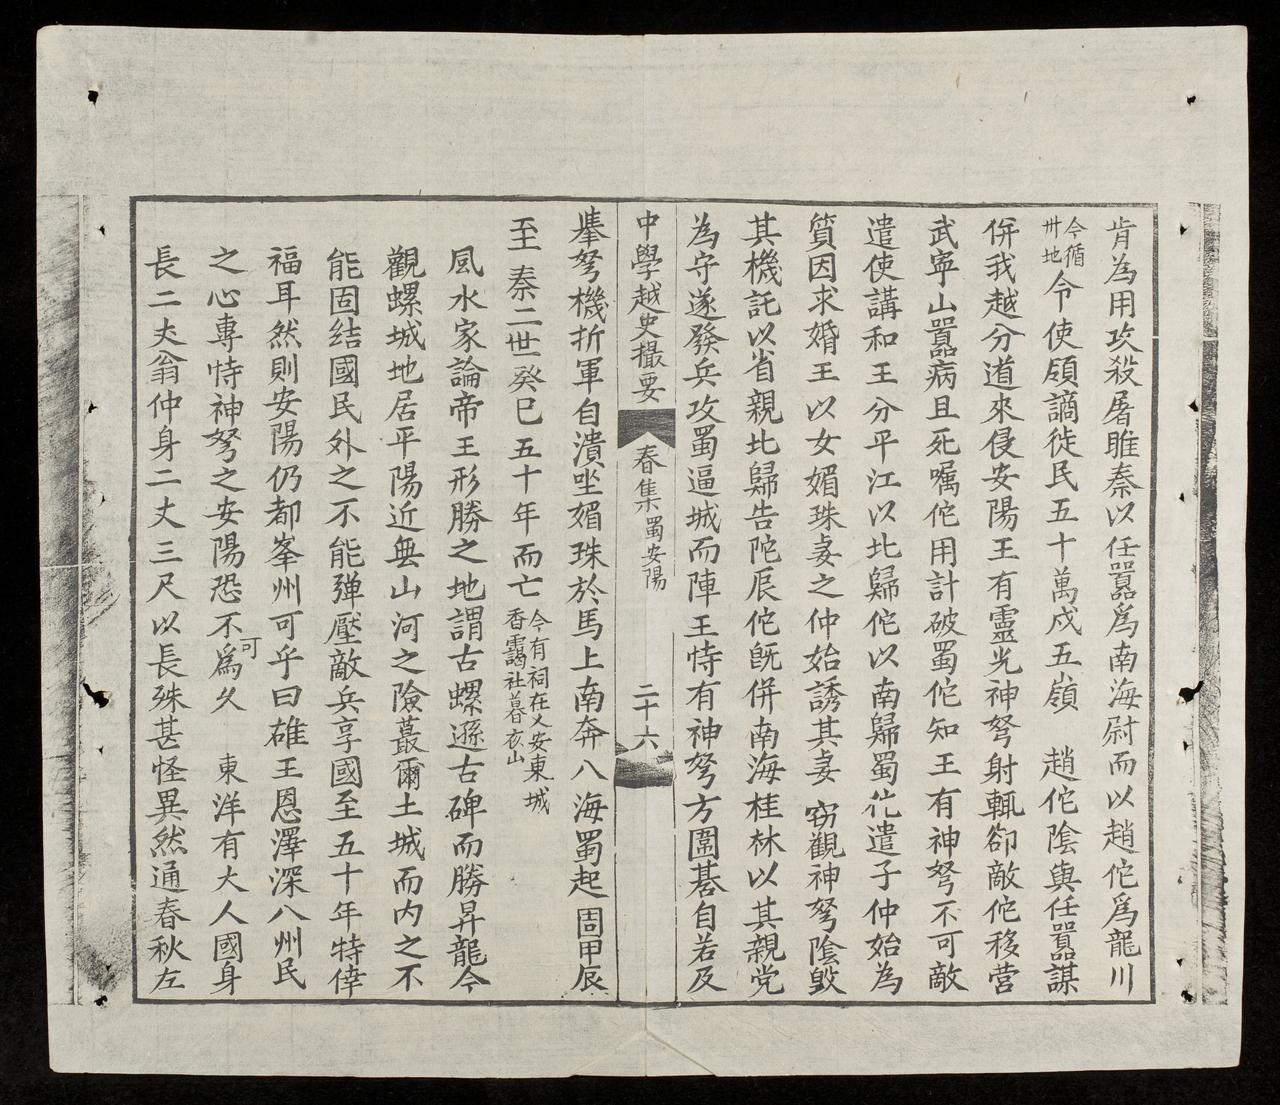 肯為用攻殺屠睢秦以任囂爲南海尉而以趙佗爲龍川
今循
卅地
令使領謫徙民五十萬戍五嶺 趙佗陰與任囂謀
併我越分道來侵安陽王有靈光神弩射輒卻敵佗移營
武寧山囂病且死嘱佗用計破蜀佗知王有神弩不可敵
遣使講和王分平江以北歸佗以南歸蜀佗遣子仲始為
質因求婚王以女媚珠妻之仲始誘其妻 窃觀神弩陰毀
其機託以省親北歸告陀辰佗旣併南海桂林以其親党
為守遂發兵攻蜀逼城而陣王恃有神弩方圍碁自若及
中學越史撮要
春集 蜀安陽
二十六
擧弩機折軍自潰坐媚珠於馬上南奔入海蜀起周甲辰
至 秦二世癸巳五十年而亡
今有祠在乂安東城
香靄社暮衣山
風水家論帝王形勝之地謂古螺遜古碑而勝昇龍今
觀螺城地居平陽近無山河之險蕞爾土城而内之不
能固結國民外之不能殫壓敵兵享國至五十年特倖
福耳然則安陽仍都峯州可乎曰雄王恩澤深八州民
之心專恃神弩之安陽恐不爲久 東洋有大人國身
可
長二丈翁仲身二丈三尺以長殊甚怪異然通春秋左